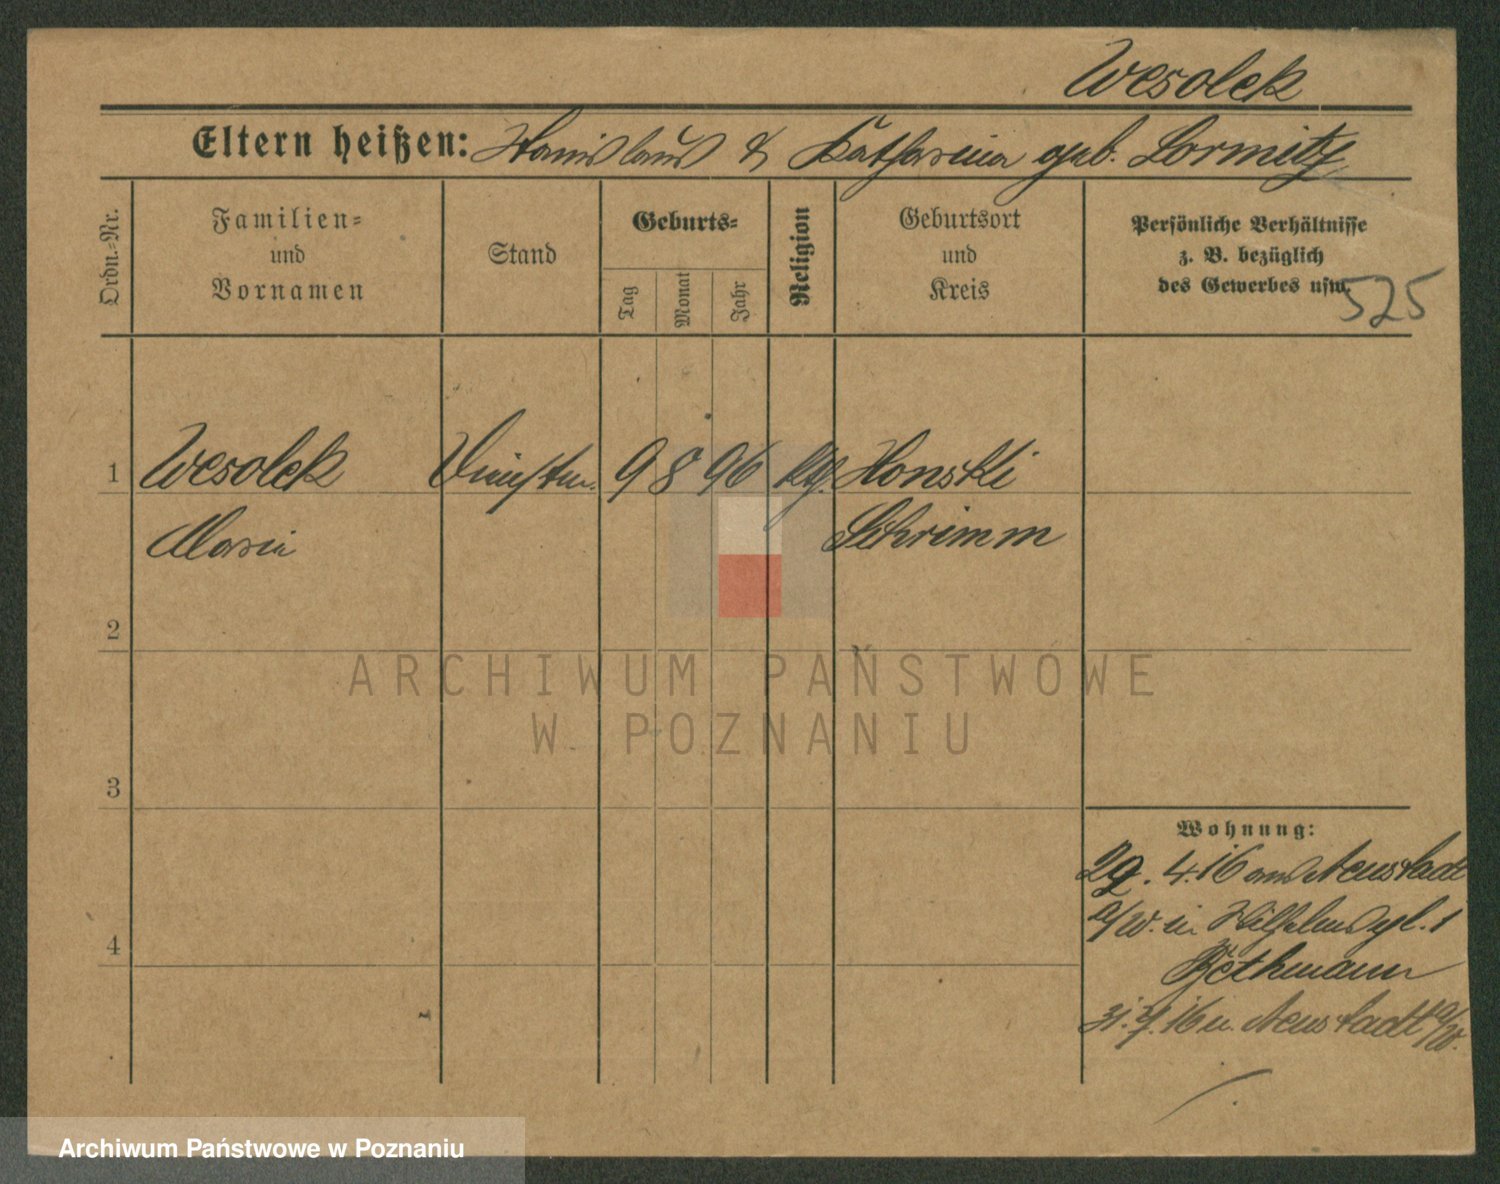 Wesolek
Eltern heißen: Stanislaus & Katharina geb. Lormitz
Ordn.=Nr.
Familien=
und
Vornamen
Stand
Geburts=
Tag
Monat
Jahr
Religion
Geburtsort
und
Kreis
Persönliche Verhältnisse
z. B. bezüglich
des Gewerbes usw.
525
1 Wesolek 9 8 96 Konski
Maria Schrimm
2
3
4
ARCHIWUM PAŃSTWOWE
W POZNANIU
Wohnung:
29. 4. 16 aus Neustadt
a/W. in Wilhelmspl. 1
Bethmann
31. 7. 16 n. Neustadt a/W.
Archiwum Państwowe w Poznaniu